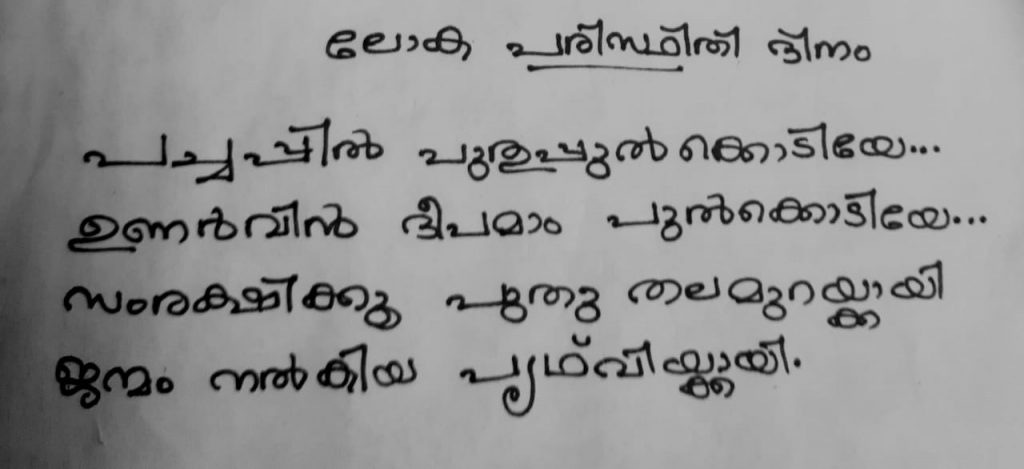 ലോക പരിസ്ഥിതി ദിനം
പച്ചപ്പിൽ പുതുപ്പുൽക്കൊടിയേ...
ഉണർവിൻ ദീപമാം പുൽക്കൊടിയേ...
സംരക്ഷിക്കൂ പുതു തലമുറയ്ക്കായി
ജന്മം നൽകിയ പൃഥ്വിയ്ക്കായി.